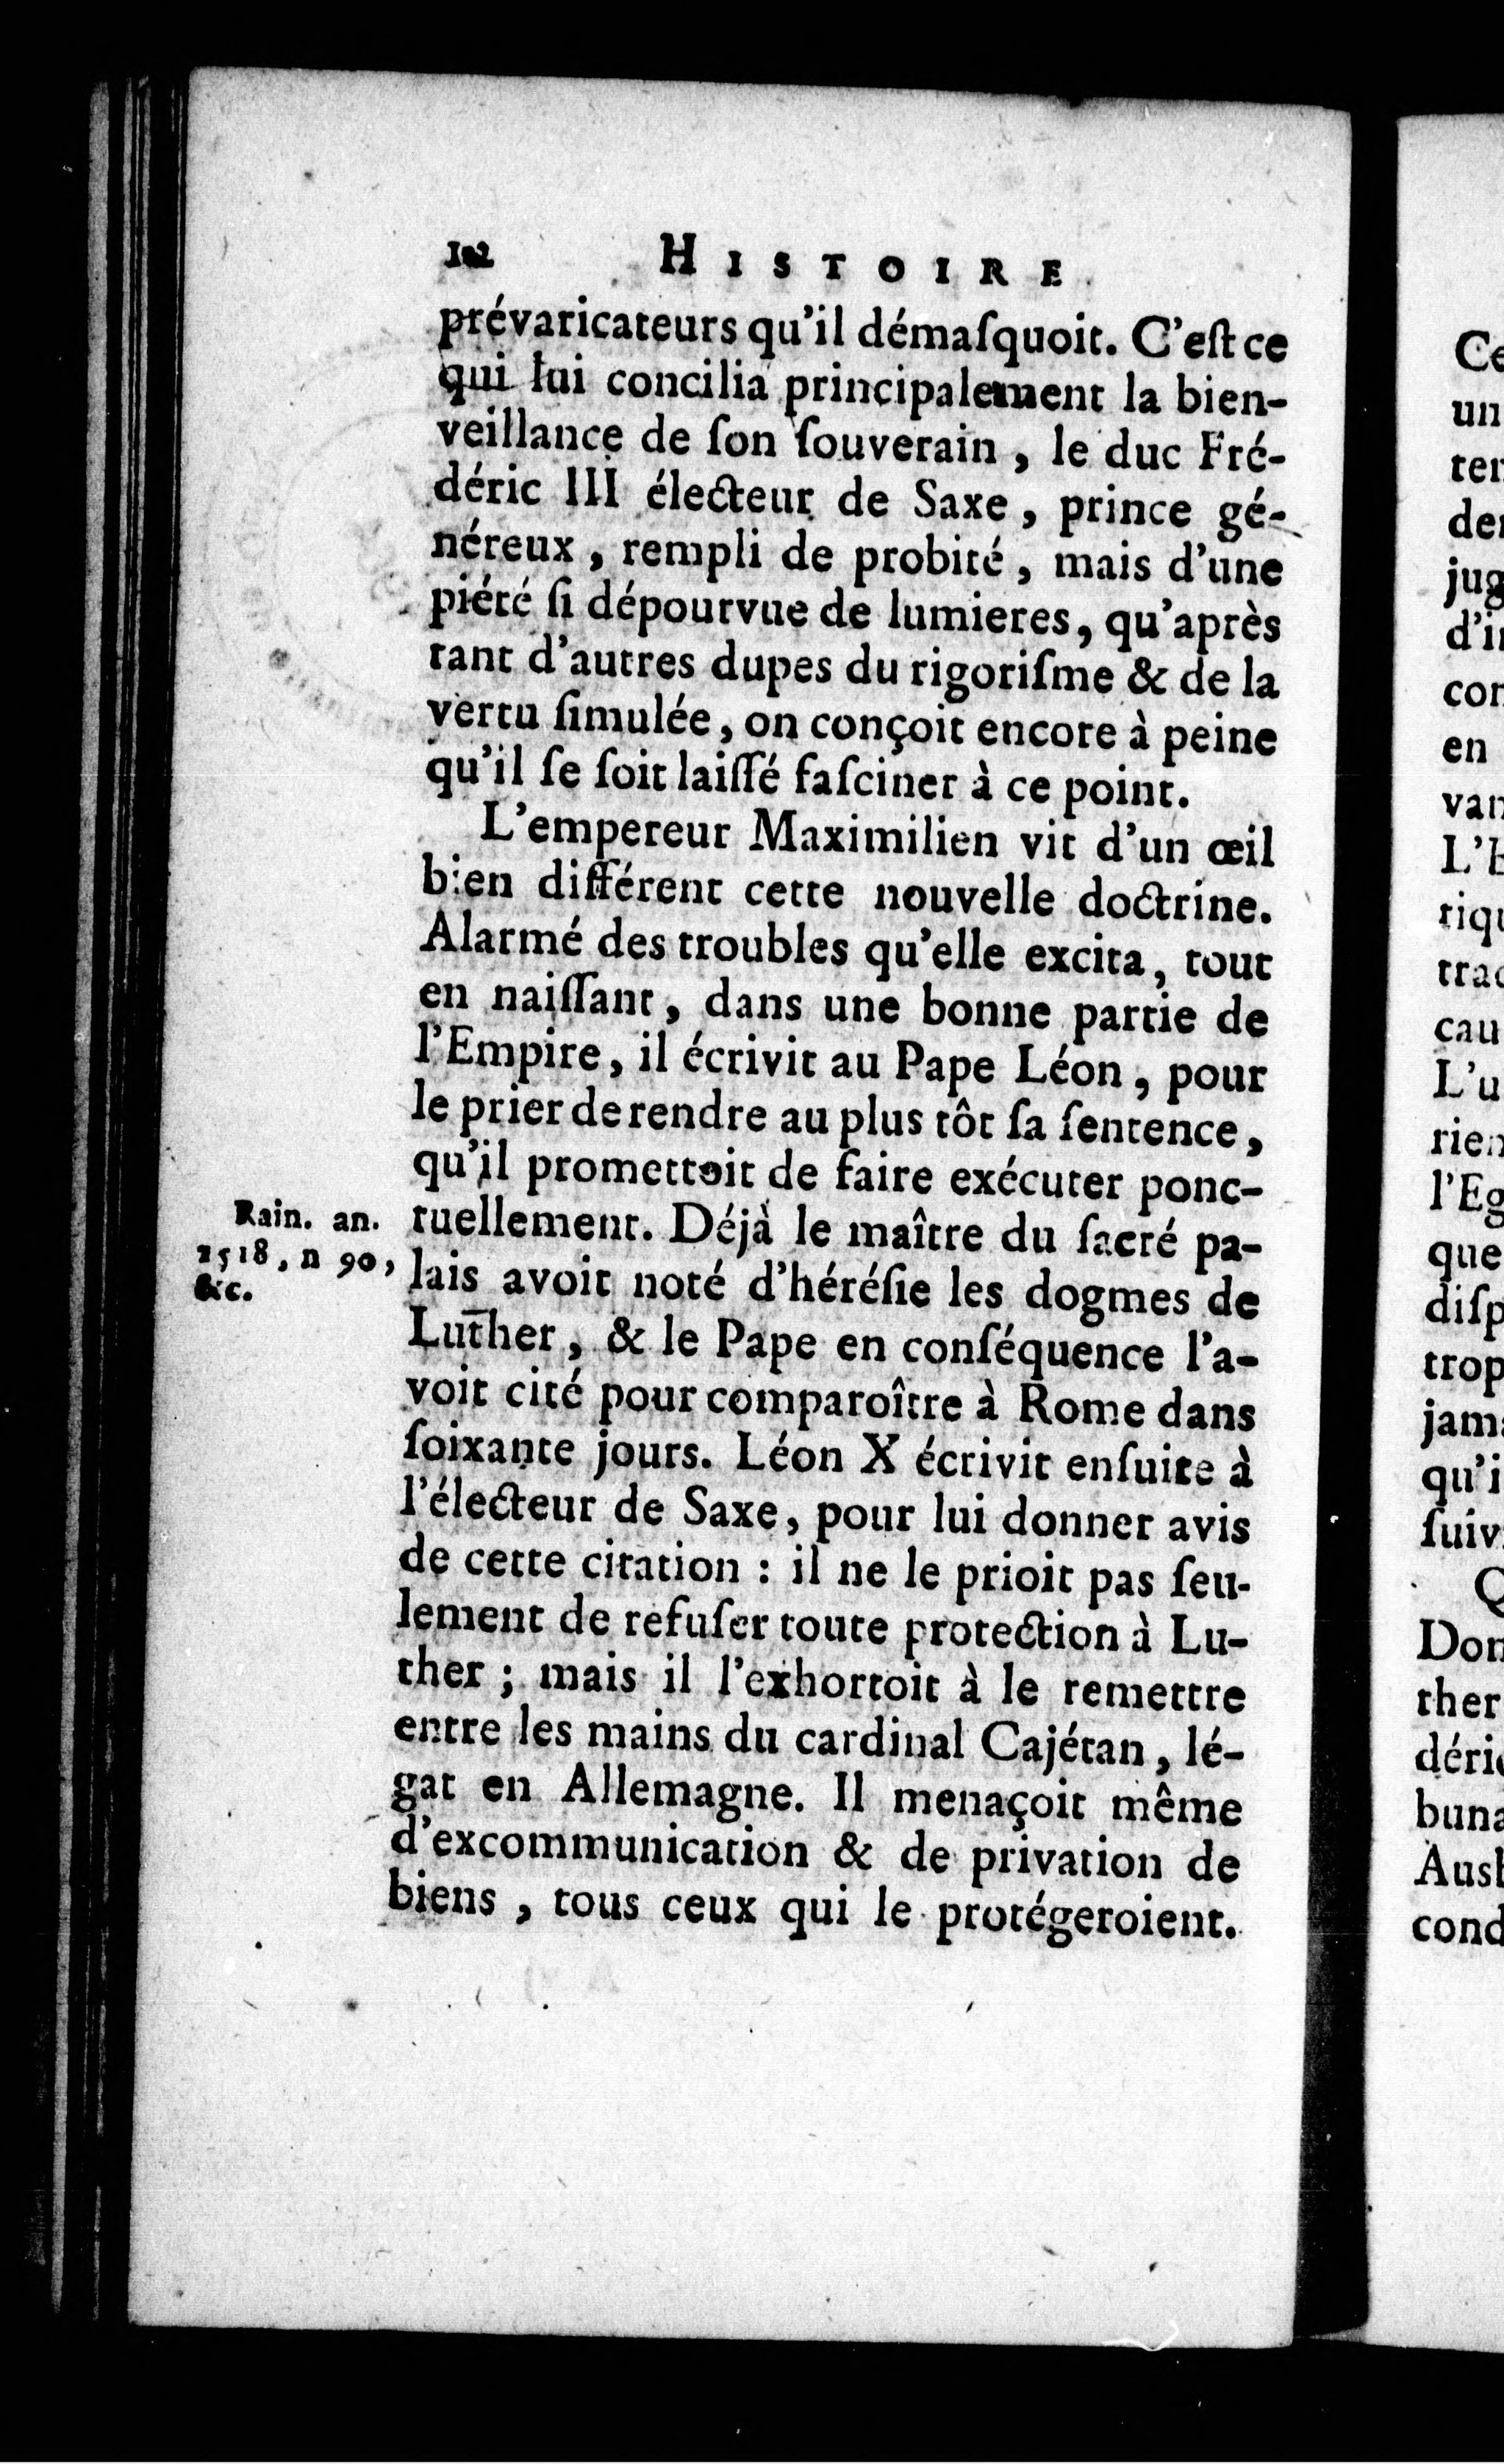 102 HISTOIRE
prévaricateurs qu'il démaſquoit. C'eſt ce
qui lui concilia principalement la bien-
veillance de ſon ſouverain, le duc Fré-
déric III électeur de Saxe, prince gé-
néreux, rempli de probité, mais d'une
piété ſi dépourvue de lumieres, qu'après
tant d'autres dupes du rigoriſme & de la
vertu ſimulée, on conçoit encore à peine
qu'il ſe ſoit laiſſé faſciner à ce point.
L'empereur Maximilien vit d'un œil
bien différent cette nouvelle doctrine.
Alarmé des troubles qu'elle excita, tout
en naiſſant, dans une bonne partie de
l'Empire, il écrivit au Pape Léon, pour
le prier de rendre au plus tôt ſa ſentence,
qu'il promettoit de faire exécuter ponc-
tuellement. Déjà le maître du ſacré pa-
lais avoit noté d'héréſie les dogmes de
Luther, & le Pape en conſéquence l'a-
voit cité pour comparoître à Rome dans
ſoixante jours. Léon X écrivit enſuite à
l'électeur de Saxe, pour lui donner avis
de cette citation : il ne le prioit pas ſeu-
lement de refuſer toute protection à Lu-
ther ; mais il l'exhortoit à le remettre
entre les mains du cardinal Cajétan, lé-
gat en Allemagne. Il menaçoit même
d'excommunication & de privation de
biens, tous ceux qui le protégeroient.
Rain. an.
1518, n 90,
&c.
Ce
un
ter
de
jug
d'i
con
en
van
L'E
riqu
trac
cau
L'u
rien
l'Eg
que
diſp
trop
jam
qu'i
ſuiv
Q
Don
ther
déri
buna
Ausb
cond